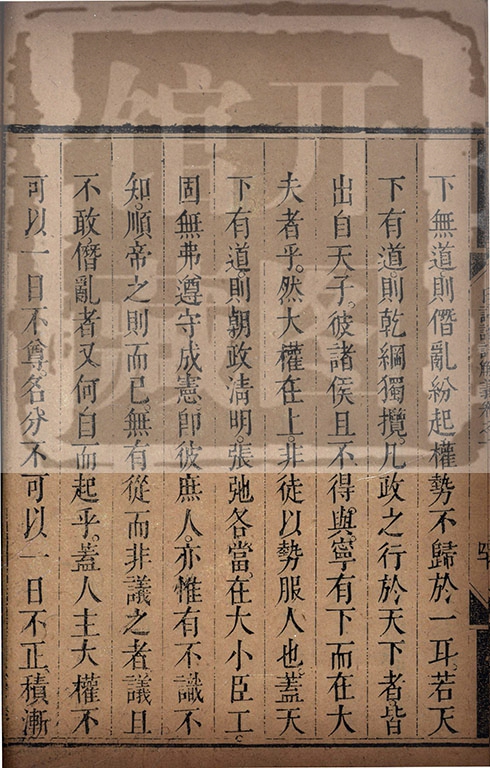 下無道則僭亂紛起權勢不歸於一耳若天
下有道則乾綱獨攬凡政之行於天下者皆
出自天子彼諸侯且不得與寧有下而在大
夫者乎然大權在上非徒以勢服人也蓋天
下有道則朝政清明張弛各當在大小臣工
固無弗遵守成憲即彼庶人亦惟有不識不
知順帝之則而已無有從而非議之者議且
不敢僭亂者又何自而起乎蓋人主大權不
可以一日不尊名分不可以一日不正積漸